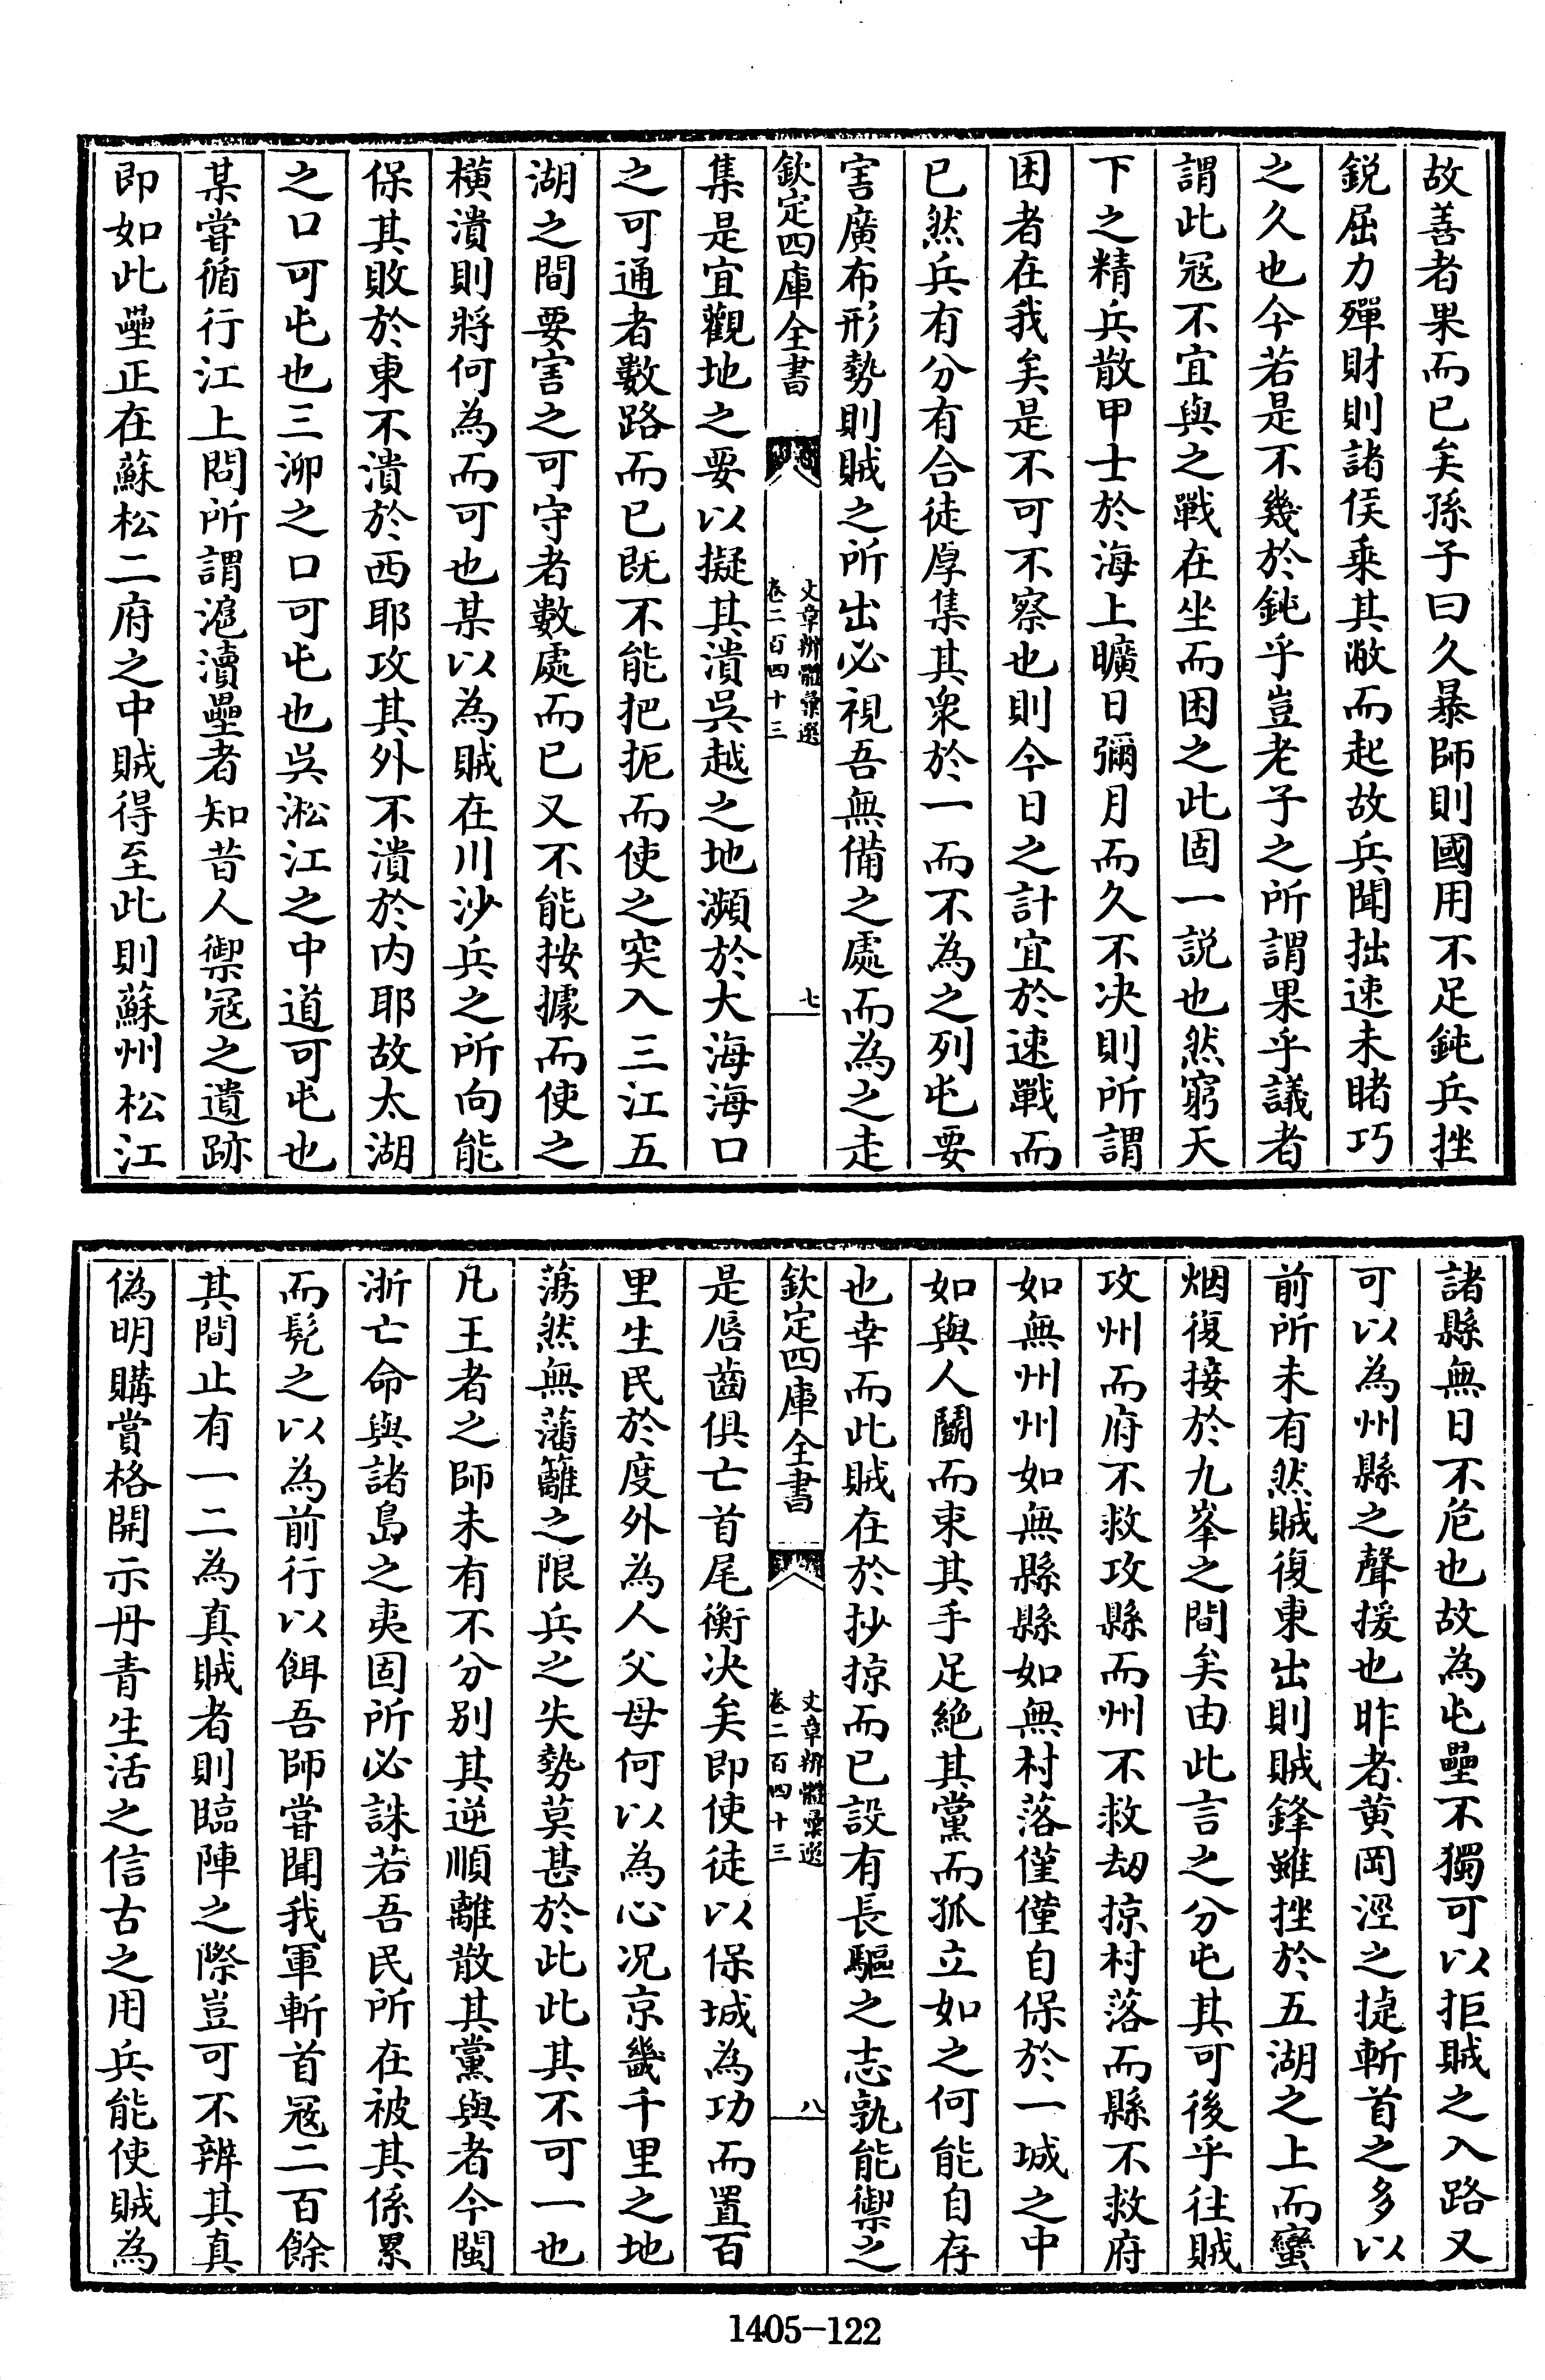 故善者果而已矣孫子曰久暴師則國用不足鈍兵挫
鋭屈力殫財則諸侯乘其敝而起故兵聞拙速未睹巧
之久也今若是不幾於鈍乎豈老子之所謂果乎議者
謂此冦不宜與之戰在坐而困之此固一説也然窮天
下之精兵散甲士於海上曠日彌月而久不决則所謂
困者在我矣是不可不察也則今日之計宜於速戰而
已然兵有分有合徒厚集其衆於一而不為之列屯要
害廣布形勢則賊之所出必視吾無備之處而為之走
欽定四庫全書
文章辨體彙選
卷二百四十三
七
集是宜觀地之要以擬其潰吳越之地瀕於大海海口
之可通者數路而已既不能把扼而使之突入三江五
湖之間要害之可守者數處而已又不能按據而使之
横潰則將何為而可也某以為賊在川沙兵之所向能
保其敗於東不潰於西耶攻其外不潰於内耶故太湖
之口可屯也三泖之口可屯也吳淞江之中道可屯也
某嘗循行江上問所謂滬瀆壘者知昔人禦冦之遺跡
即如此壘正在蘇松二府之中賊得至此則蘇州松江
諸縣無日不危也故為屯壘不獨可以拒賊之入路又
可以為州縣之聲援也昨者黄岡涇之捷斬首之多以
前所未有然賊復東出則賊鋒雖挫於五湖之上而蠻
烟復接於九峯之間矣由此言之分屯其可後乎往賊
攻州而府不救攻縣而州不救刼掠村落而縣不救府
如無州州如無縣縣如無村落僅僅自保於一城之中
如與人鬭而束其手足絶其黨而孤立如之何能自存
也幸而此賊在於抄掠而已設有長驅之志孰能禦之
欽定四庫全書
文章辨體彙選
卷二百四十三
八
是唇齒俱亡首尾衡决矣即使徒以保城為功而置百
里生民於度外為人父母何以為心况京畿千里之地
蕩然無藩籬之限兵之失勢莫甚於此此其不可一也
凡王者之師未有不分别其逆順離散其黨與者今閩
浙亡命與諸島之夷固所必誅若吾民所在被其係累
而髠之以為前行以餌吾師嘗聞我軍斬首冦二百餘
其間止有一二為真賊者則臨陣之際豈可不辨其真
偽明購賞格開示丹青生活之信古之用兵能使賊為
1405-122